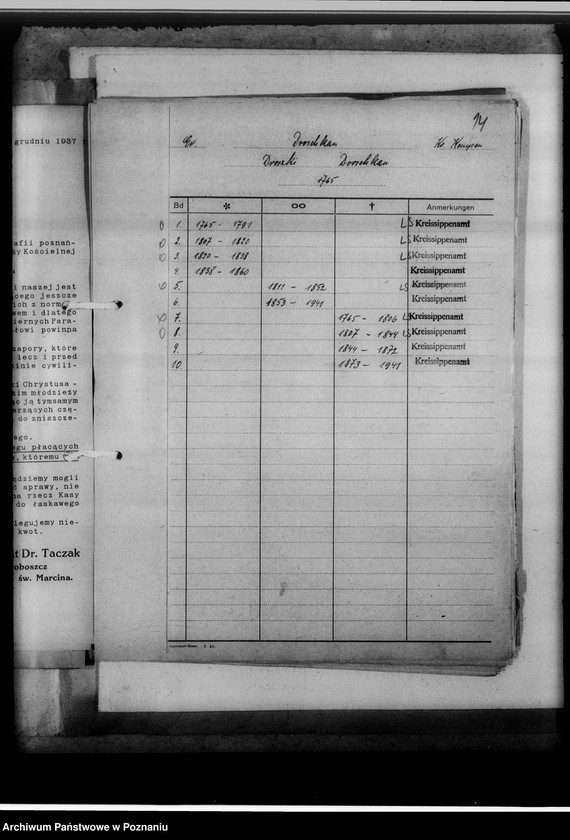 grudniu 1937
afii poznań-
ny Kościelnej
i naszej jest
ącego jeszcze
ich z norm
wem i dlatego
iernych Para-
łowi powinna
zapory, które
lecz i przed
nie cywili-
i Chrystusa -
kim młodzieży
ąc ją tymsamym
erzących czę-
do zniszcze-
ego.
egu płacących
, któremu
ędziemy mogli
ć aprawy, nie
na rzecz Kasy
do łaskawego
legujemy nie-
kwot.
t Dr. Taczak
oboszcz
św. Marcina.
14
Ev. Droschkau Kr. Kempen
Droszki Droschkau
1765
Bd * ∞ † Anmerkungen
0 1. 1765 - 1791 LS Kreissippenamt
0 2. 1807 - 1820 LS Kreissippenamt
0 3. 1820 - 1838 LS Kreissippenamt
4. 1838 - 1860 Kreissippenamt
0 5. 1811 - 1852 LS Kreissippenamt
6. 1853 - 1941 Kreissippenamt
0 7. 1765 - 1806 LS Kreissippenamt
0 8. 1807 - 1844 LS Kreissippenamt
9. 1844 - 1872 Kreissippenamt
10. 1873 - 1941 Kreissippenamt
Archiwum Państwowe w Poznaniu